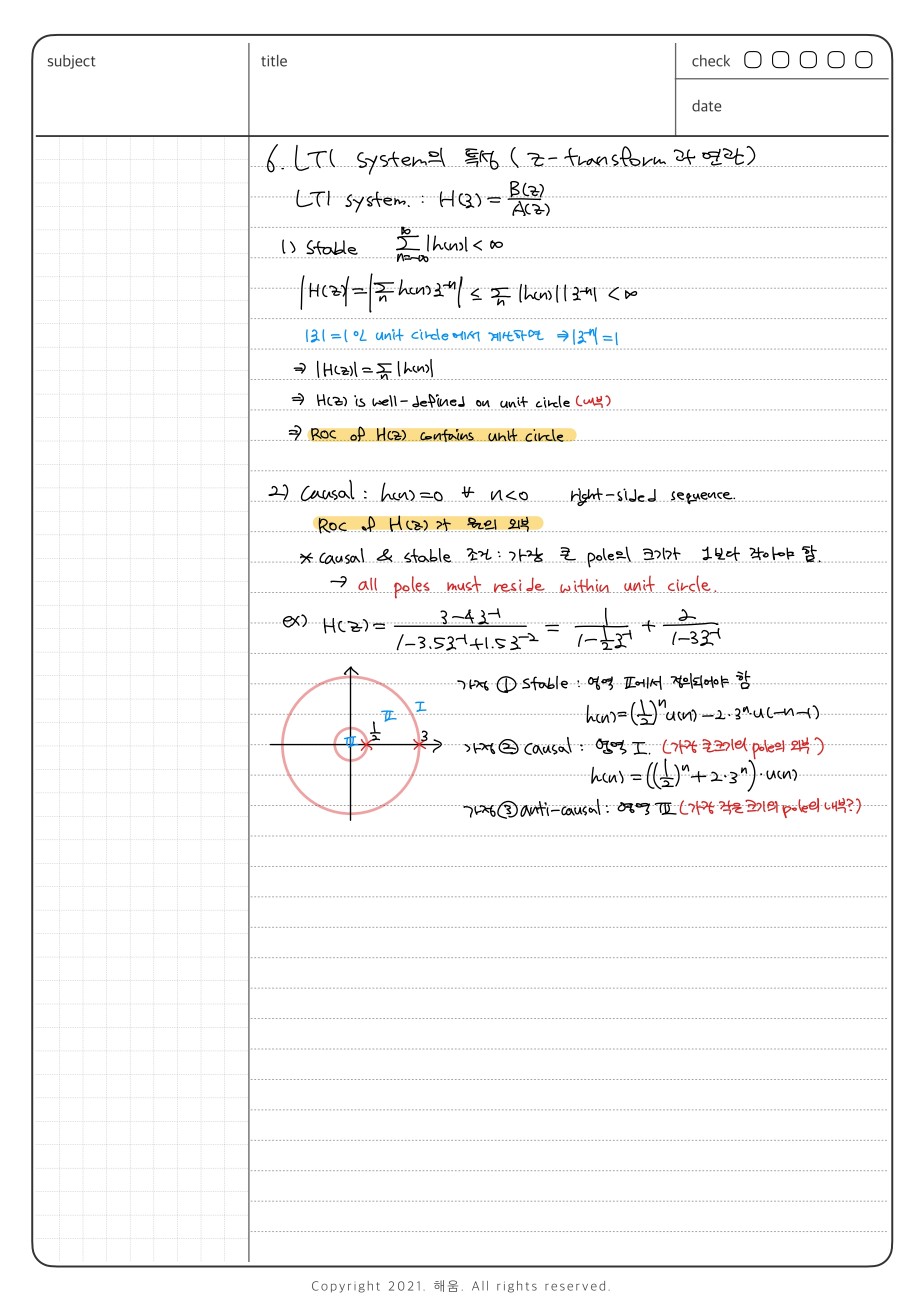 subject
title
check
date
6. LTI system의 특성 ( z-transform과 연관)
LTI system. : H(z) = B(z)/A(z)
1) stable ∑_{n=-∞}^{∞} |h(n)| < ∞
|H(z)| = |∑_n h(n) z^{-n}| ≤ ∑_n |h(n)| |z^{-n}| < ∞
|z| = 1 인 unit circle에서 계산하면 ⇒ |z^{-n}| = 1
⇒ |H(z)| = ∑_n |h(n)|
⇒ H(z) is well-defined on unit circle (내부)
⇒ ROC of H(z) contains unit circle
2) Causal : h(n) = 0 ∀ n<0 right-sided sequence.
ROC of H(z)가 원의 외부
* causal & stable 조건 : 가장 큰 pole의 크기가 1보다 작아야 함.
→ all poles must reside within unit circle.
ex) H(z) = (3-4z^{-1})/(1-3.5z^{-1}+1.5z^{-2}) = 1/(1-\frac{1}{2}z^{-1}) + 2/(1-3z^{-1})
가정 ① stable : 영역 Ⅱ에서 정의되어야 함
h(n) = (1/2)^n u(n) - 2·3^n·u(-n-1)
가정 ② causal : 영역 Ⅰ. (가장 큰 크기의 pole의 외부)
h(n) = ((1/2)^n + 2·3^n)·u(n)
가정 ③ anti-causal : 영역 Ⅲ (가장 작은 크기의 pole의 내부?)
Ⅰ
Ⅱ
Ⅲ
1/2
3
Copyright 2021. 해움. All rights reserved.